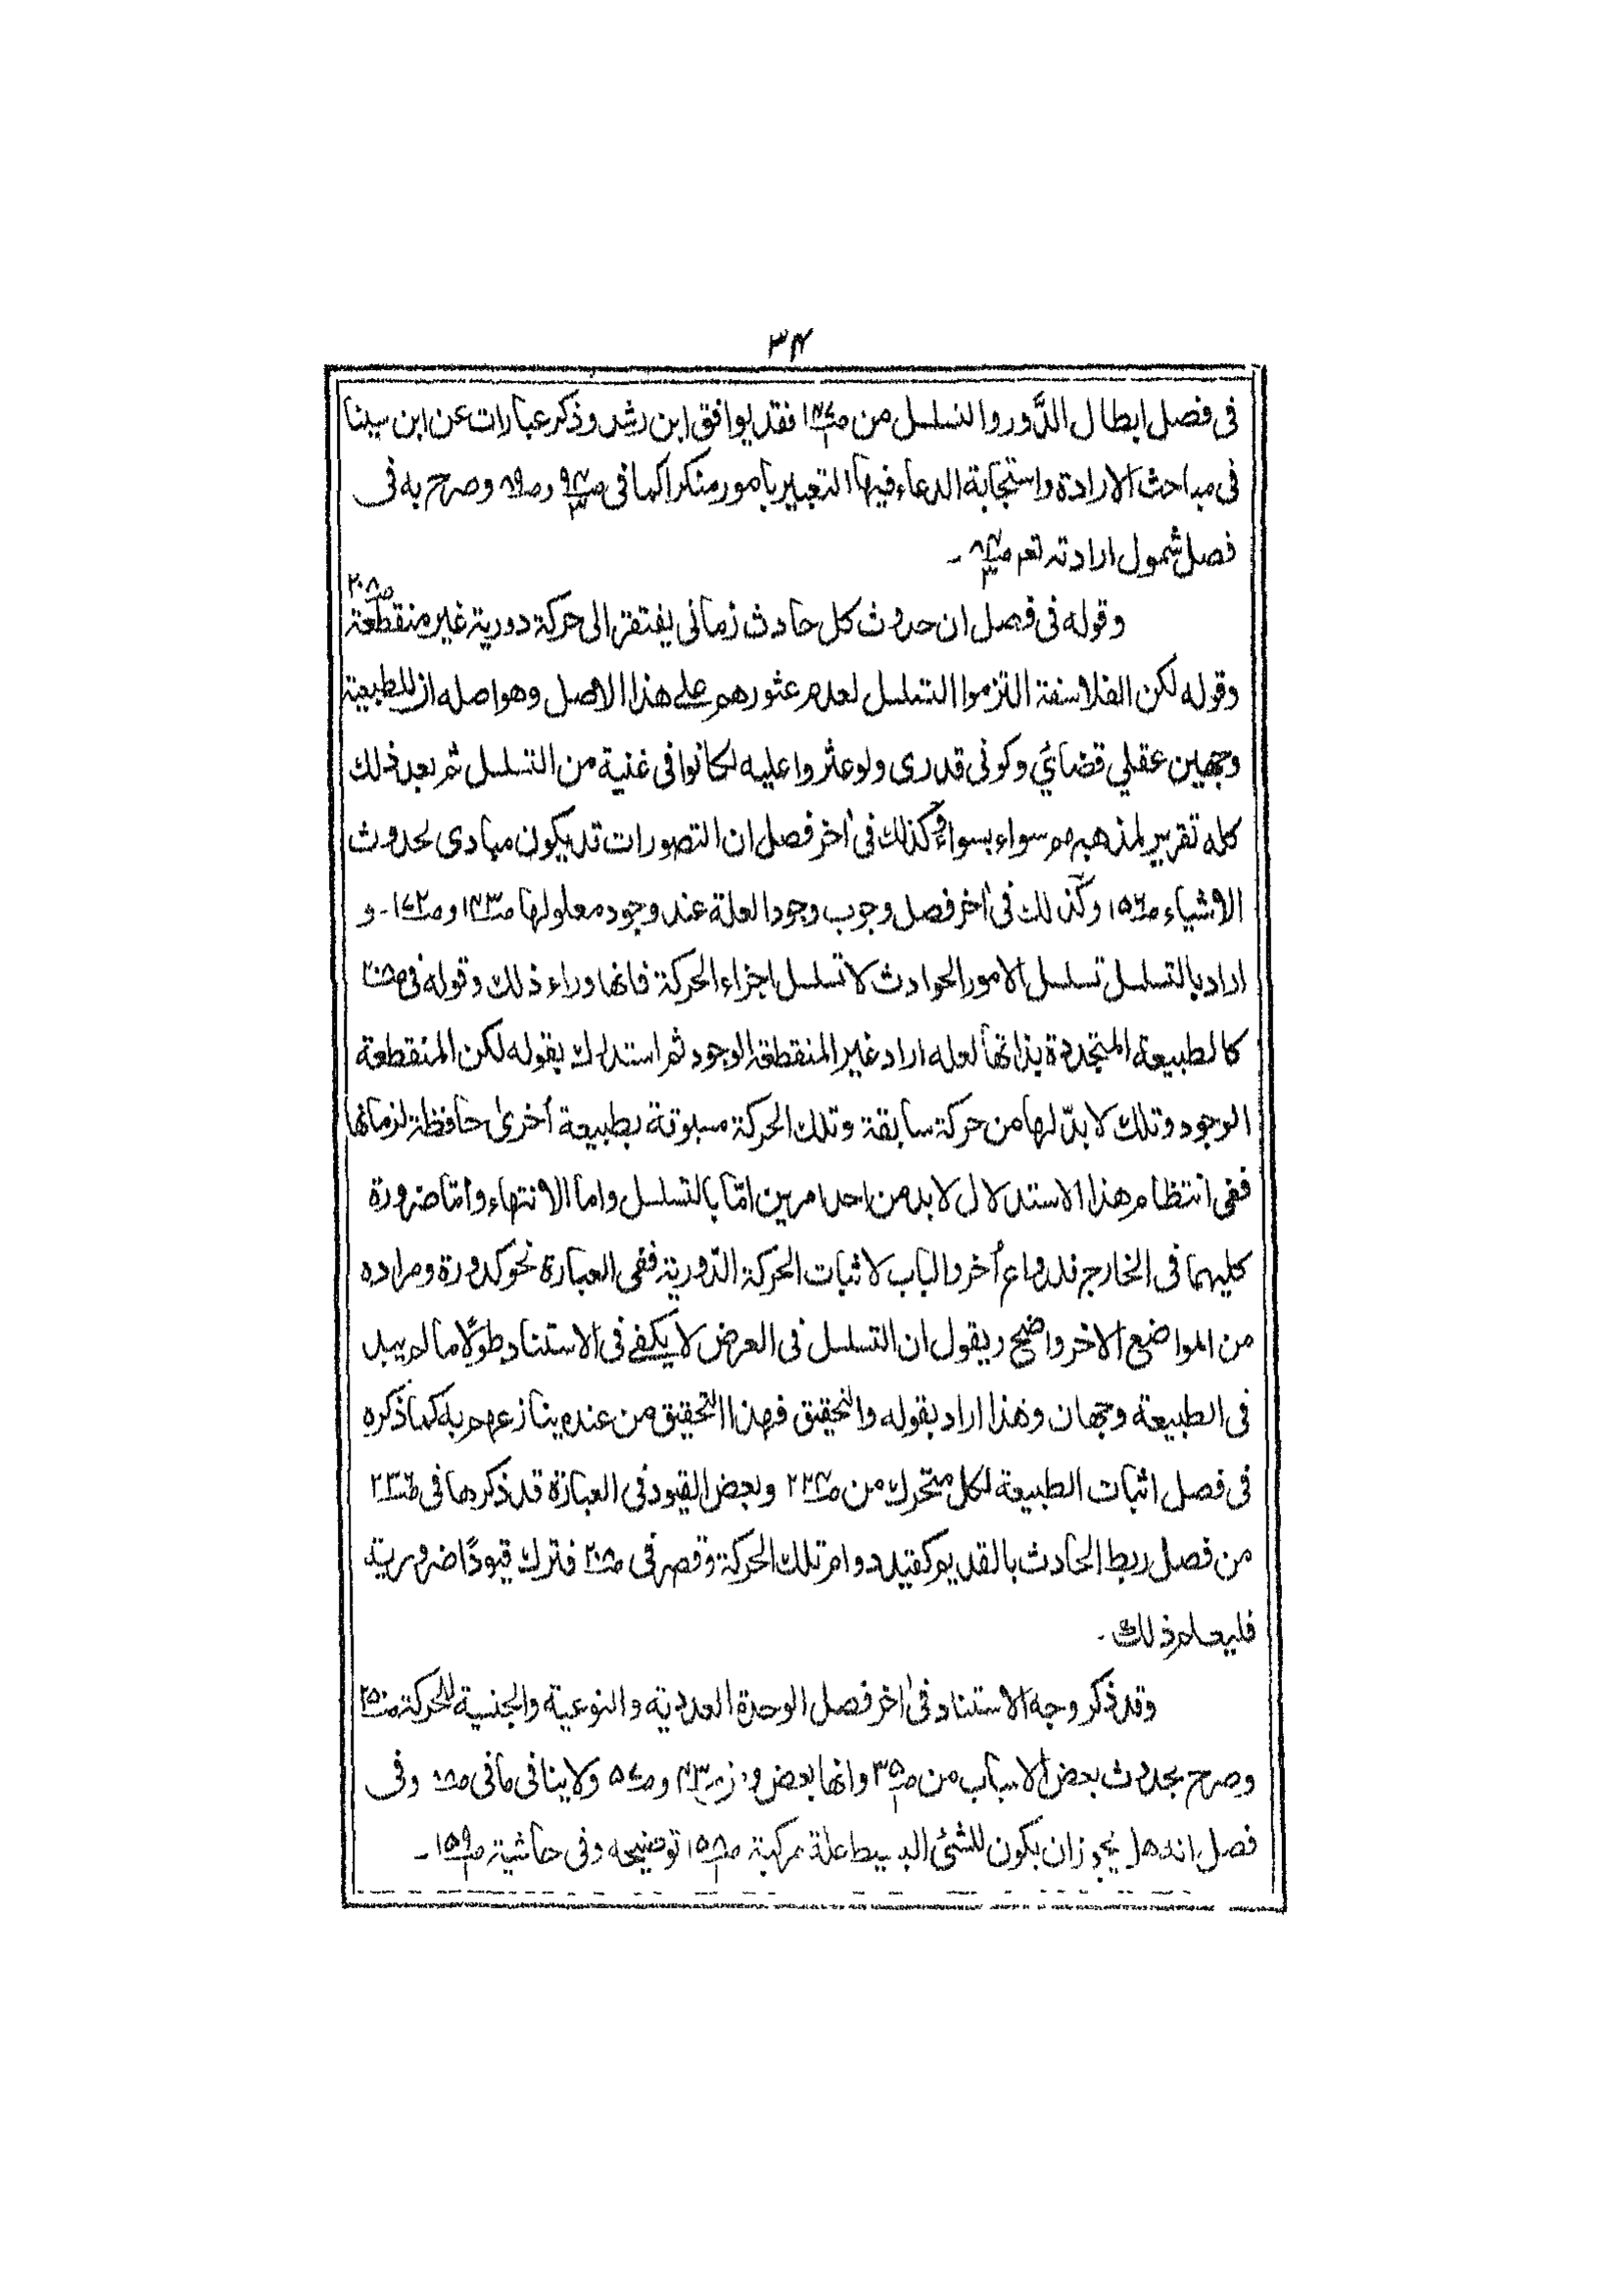 ٣٤
فى فصل ابطال الدَّور والتسلسل من فقد يوافق ابن رشد وذكر عبارات عن ابن سينا
فى مباحث الارادة واستجابة الدعاء فيها التعبير بامور منكرا كما فى وصرح به فى
فصل شمول ارادته تعم
وقوله فى فصل ان حدوث كل حادث زمانى يفتقر الى حركة دورية غير منقطعة ص٢٠٨
وقوله لكن الفلاسفة التزموا التسلسل لعدم عثورهم على هذا الاصل وهو اصله ان للطبيعة
وجهين عقلي قضائي وكونى قدرى ولو عثروا عليه لكانوا فى غنية من التسلسل ثم بعد ذلك
كله تقرير لمذهبهم سواء بسواء وكذلك فى اٰخر فصل ان التصورات قد يكون مبادى لحدوث
الاشياء ص١٥٦ وكذلك فى اٰخر فصل وجوب وجود العلة عند وجود معلولها و
اراد بالتسلسل تسلسل الامور الحوادث لا تسلسل اجزاء الحركة فانها وراء ذلك وقوله فى ص٢٠٨
كالطبيعة المتجددة بذاتها لعله اراد غير المنقطعة الوجود ثم استدرك بقوله لكن المنقطعة
الوجود وتلك لا بدّ لها من حركة سابقة وتلك الحركة مسبوقة بطبيعة اُخرىٰ حافظة لزمانها
ففى انتظام هذا الاستدلال لا بد من احد امرين امّا بالتسلسل واما الانتهاء وامّا ضرورة
كليهما فى الخارج فلدواع اُخر والباب لاثبات الحركة الدّورية ففى العبارة نحو كدورة ومراده
من المواضع الاخر واضح ويقول ان التسلسل فى العرض لا يكفے فى الاستناد طولًا ما لم يبد
فى الطبيعة وجهان وهذا اراد بقوله والتحقيق فهذا التحقيق من عنده ينازعهم به كما ذكره
فى فصل اثبات الطبيعة لكل متحرك من وبعض القيود فى العبارة قد ذكرها فى
من فصل ربط الحادث بالقديم كقيد دوام تلك الحركة وقصر فى ص٢٠٨ فترك قيودًا ضرورية
فليعلم ذلك ۔
وقد ذكر وجه الاستناد فى اٰخر فصل الوحدة العددية والنوعية والجنسية للحركة
وصرح بحدوث بعض الاسباب من ص٣٥ وانها بعض ولا ينافى ما فى وفى
فصل انه هل يجوز ان يكون للشئ البسيط علة مركبة ص١٥٨ توضيحه وفى حاشية ص١٥٩ ۔